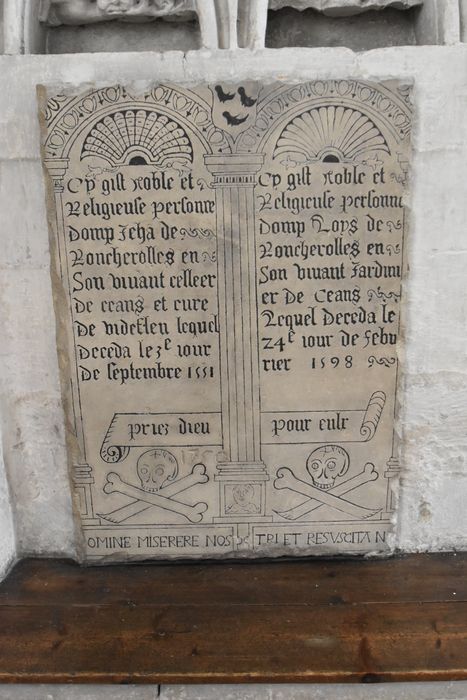 Cy gist noble et
Religieuse personne
Domp Jehā de
Roncherolles en
Son vivant celleer
De ceans et cure
De videflen lequel
Deceda le 3e iour
De septembre 1551
priez dieu
Cy gist noble et
Religieuse personne
Domp Loys de
Roncherolles en
Son vivant Jardini
er De Ceans
Lequel Deceda le
24e iour de febv
rier 1598
pour eulx
OMINE MISERERE NOS
TRI ET RESUSCITA N